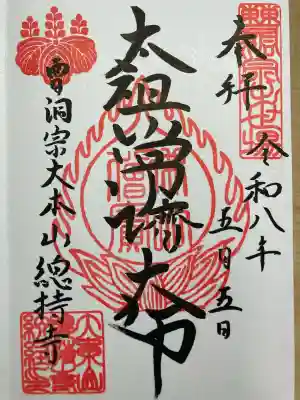 奉拝
令和八年
五月五日
太祖常濟大師
曹洞宗大本山總持寺